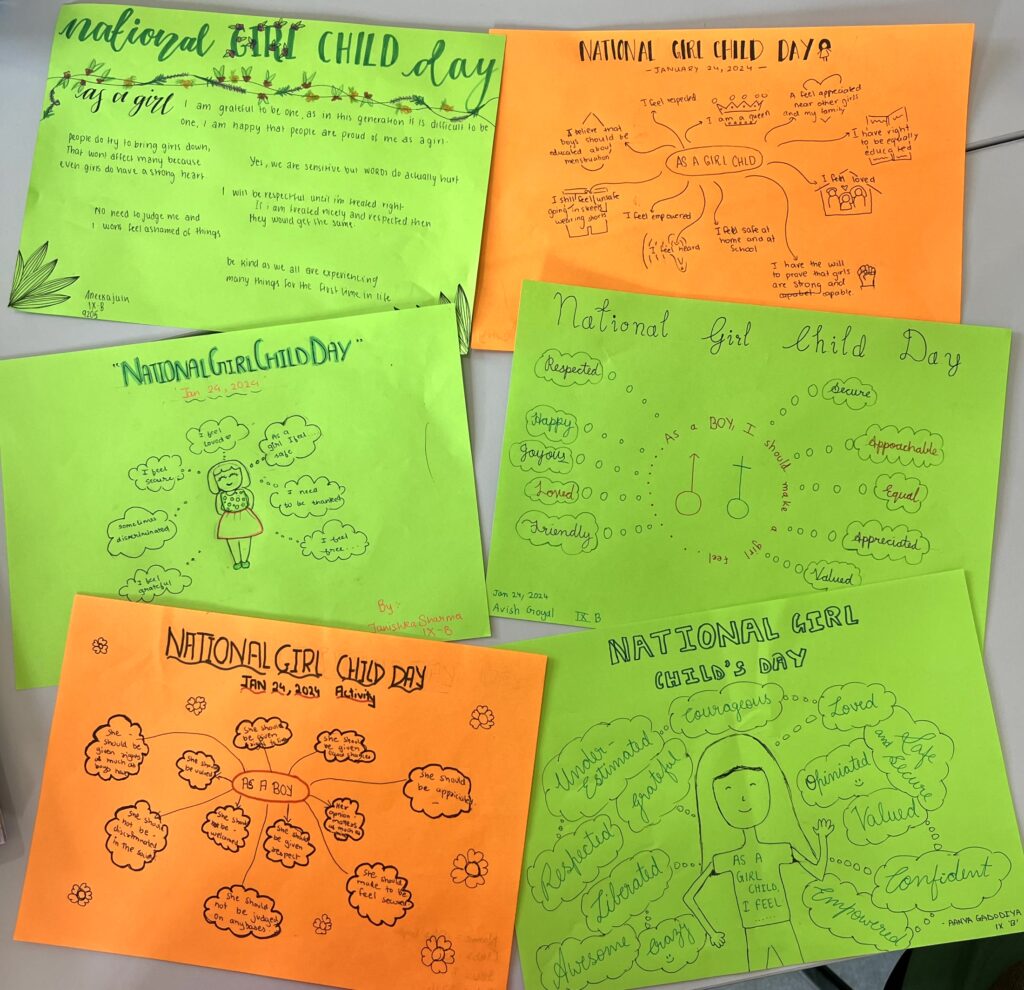 national GIRL CHILD day
as a girl
I am grateful to be one, as in this generation it is difficult to be
one, I am happy that people are proud of me as a girl.
people do try to bring girls down,
That wont affect many because
even girls do have a strong heart
Yes, we are sensitive but words do actually hurt
I will be respectful until im treated right
If i am treated nicely and respected then
they would get the same.
No need to judge me and
I wont feel ashamed of things
be kind as we all are experiencing
many things for the first time in life
Aneeka Jain
IX-B
NATIONAL GIRL CHILD DAY
- JANUARY 24, 2024 -
AS A GIRL CHILD
I feel respected
I am a queen
A feel appreciated
near other girls
and my family
I have right
to be equally
educated
I believe that
boys should be
educated about
menstruation
I feel loved
I still feel unsafe
going in street
wearing shorts
I feel empowered
I feel safe at
home and at
School
I feel heard
I have the will
to prove that girls
are strong and
capable
"NATIONAL GIRL CHILD DAY"
Jan 24, 2024
I feel
loved
As a
girl I feel
safe
I feel
secure
I need
to be thanked
sometimes
discriminated
I feel
free...
I feel
grateful
By:-
Tanishka Sharma
IX-B
National Girl Child Day
Respected
Happy
Joyous
Loved
Friendly
As a BOY, I should make a girl feel
Secure
Appoachable
Equal
Appreciated
Valued
Jan 24, 2024
Avish Goyal IX B
NATIONAL GIRL CHILD DAY
JAN 24, 2024 Activity
AS A BOY
She
should be
given rights
as much as
boys have
She should
be valued
She should
be given
She should
be given
She should
be appriciated
She should
not be
discriminated
in the
She should
not be
Her
opinion
matters
as much as
She should
be given
respect
She should
not be judged
on any bases
She should
make to be
feel secured
NATIONAL GIRL
CHILD'S DAY
Courageous
Loved
Under-
Estimated
Grateful
and Safe
Secure
Opiniated
Valued
Respected
Liberated
Confident
Empowered
Awesome
Crazy
AS A
GIRL
CHILD,
I FEEL
.....
- AANYA GADODIYA
IX 'B'